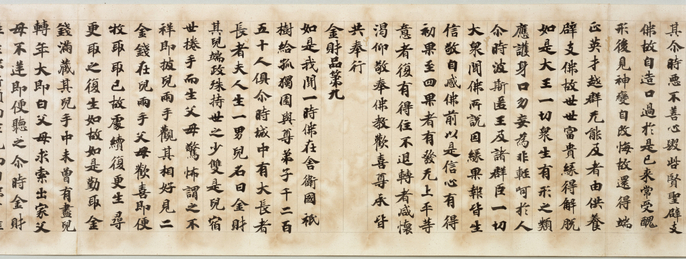 其介時惡不善心毀呰賢聖辟支
佛故自造口過於是已來常受醜
形後見神變自改悔故還得端
正英才越群无能及者由供養
辟支佛故世世富貴緣得解脫
如是大王一切眾生有形之類
應護身口勿妄為非輕呵於人
尒時波斯匿王及諸群臣一切
大眾聞佛所說因緣果報皆生
信敬自感佛前以是信心有得
初果至四果者有發无上平等
意者復有得住不退轉者咸懷
渴仰敬奉佛教歡喜尊承皆
共奉行
金財品第九
如是我聞一時佛在舍衛國祇
樹給孤獨園與尊弟子千二百
五十人俱尒時城中有大長者
長者夫人生一男兒名曰金財
其兒端政殊特世之少雙是兒宿
世捲手而生父母驚怖謂之不
祥即披兒兩手觀其相好見二
金錢在兒兩手父母歡喜即便
牧取取已故處續復更生尋
更取之復生如故如是勤取金
錢滿藏其兒手中未曾有盡兒
轉年大即白父母求索出家父
母不逆即便聽之尒時金財